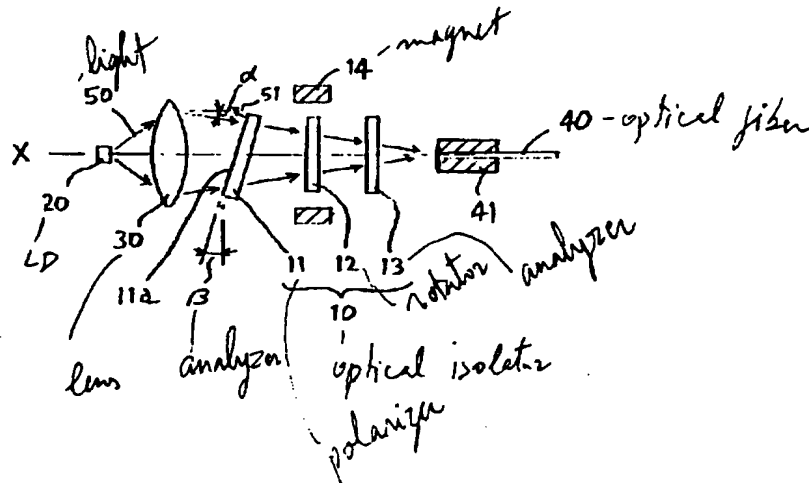 light
50
α
51
14
magnet
X
20
30
LD
11a
β
11
12
13
40 - optical fiber
41
analyzer
rotator
10
lens
analyzer
optical isolator
polarizer